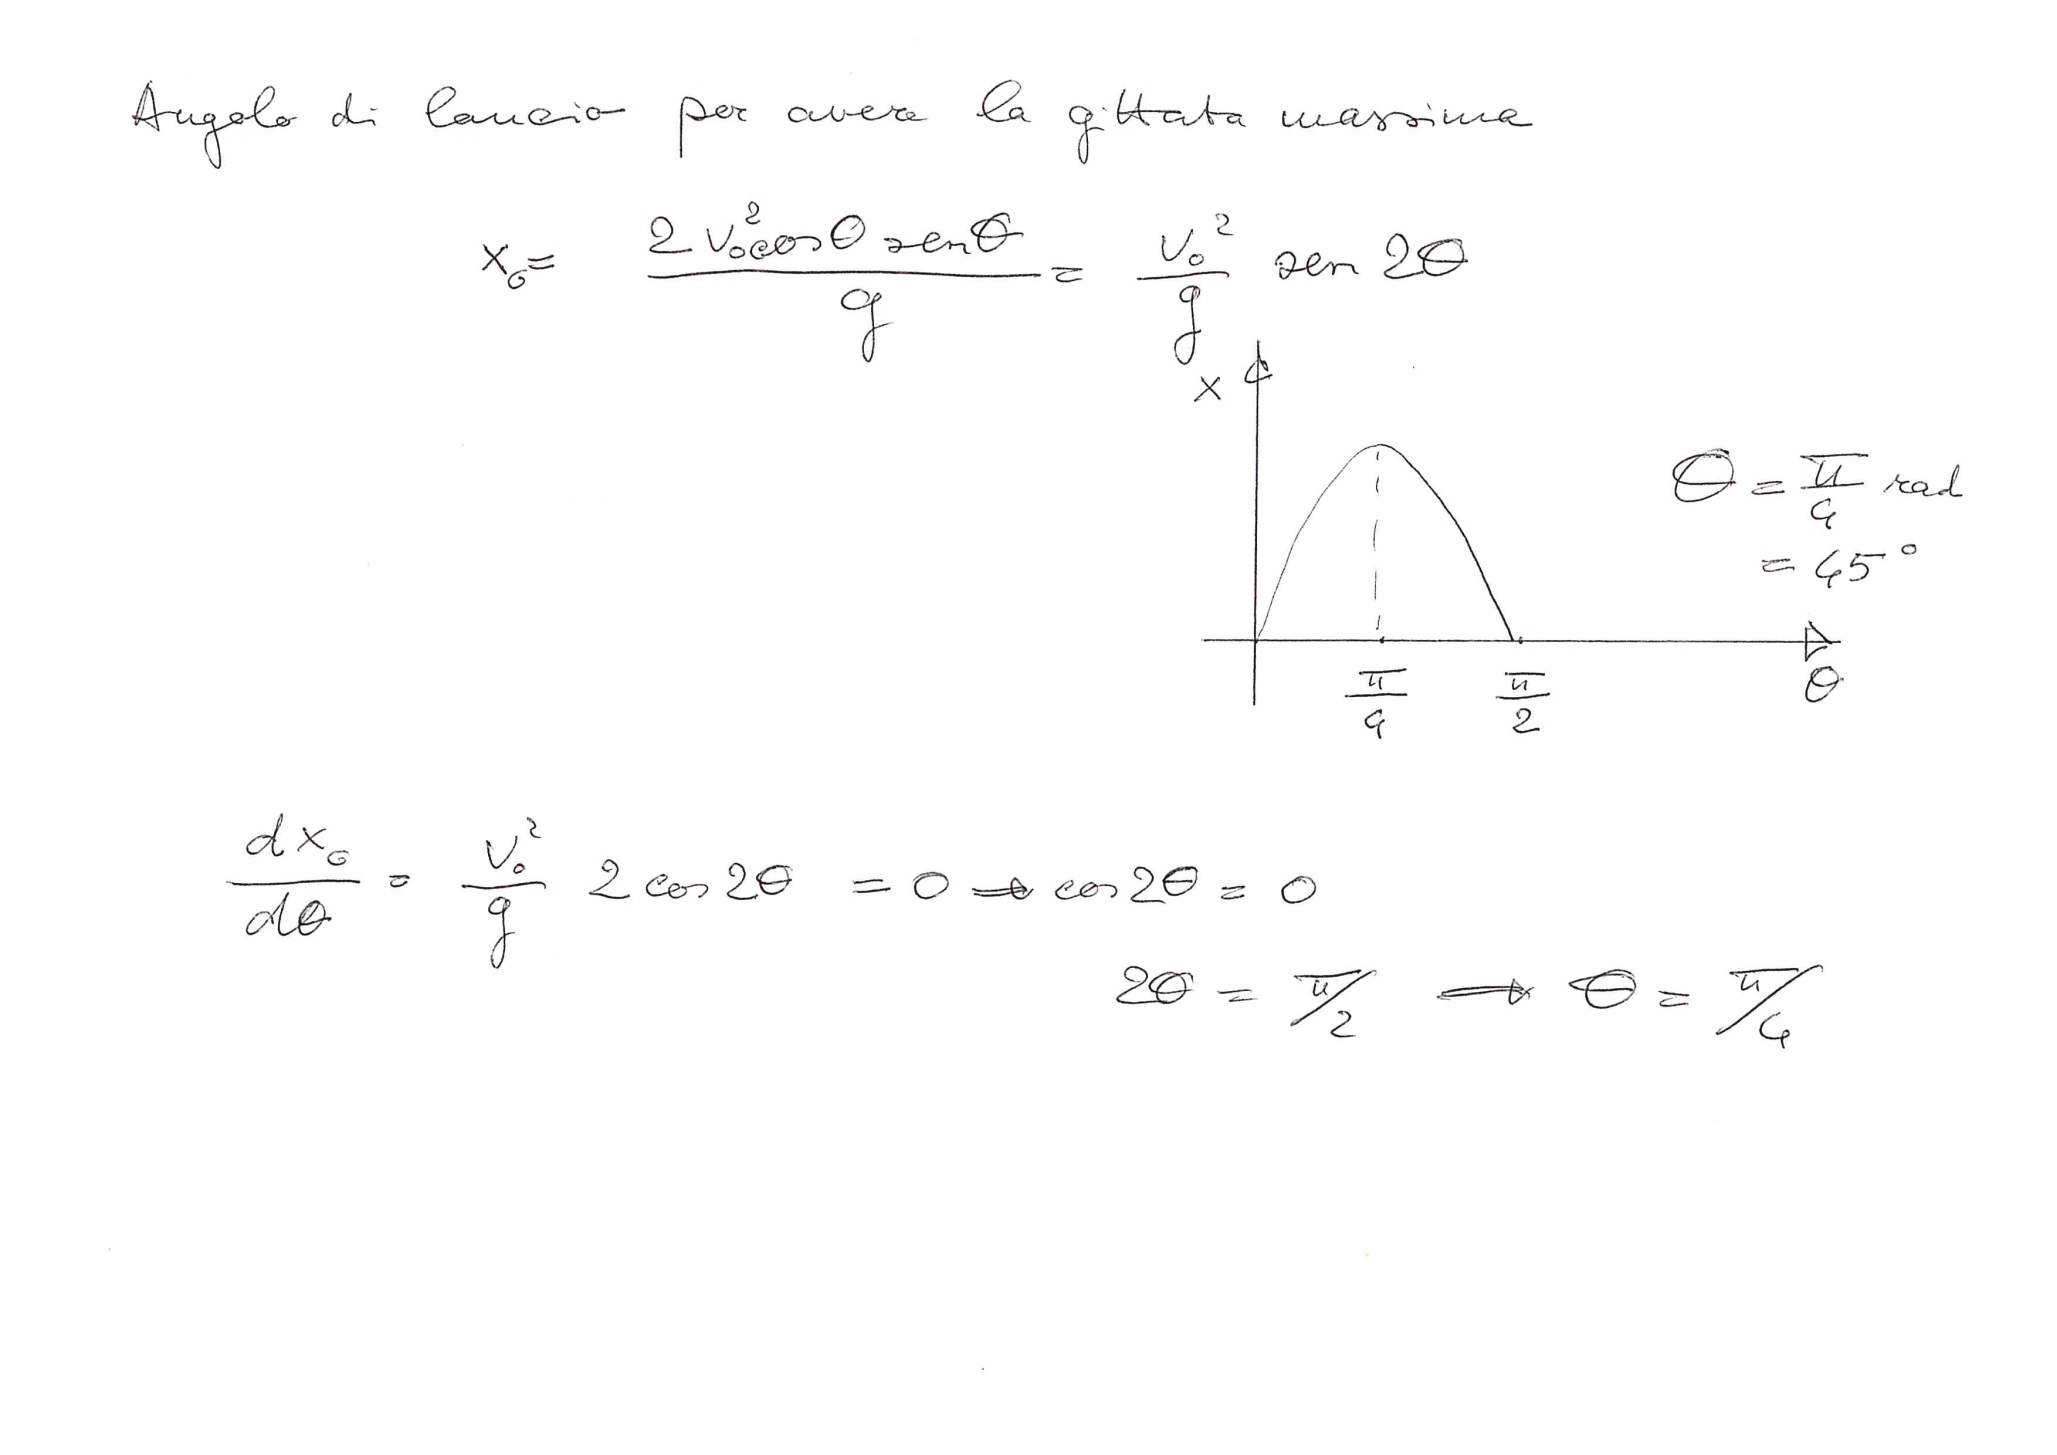 Angolo di lancio per avere la gittata massima
x_G = \frac{2 v_0^2 cos θ sen θ}{g} = \frac{v_0^2}{g} sen 2θ
x
θ = \frac{π}{4} rad
= 45°
\frac{π}{4} \frac{π}{2} θ
\frac{d x_G}{dθ} = \frac{v_0^2}{g} 2 cos 2θ = 0 → cos 2θ = 0
2θ = π/2 → θ = π/4